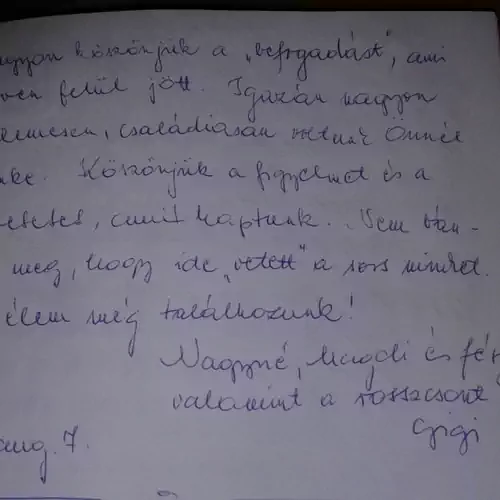 nagyon köszönjük a „befogadást", ami
ven felül jött. Igazán nagyon
lemesen, családiasan voltunk Önnél
nke. Köszönjük a figyelmet és a
etetet, amit kaptunk. Nem bán-
meg, hogy ide „vetett" a sors minket.
élem még találkozunk!
Nagyné, Magdi és fér
valamint a rosszcsont
Gigi
aug. 7.